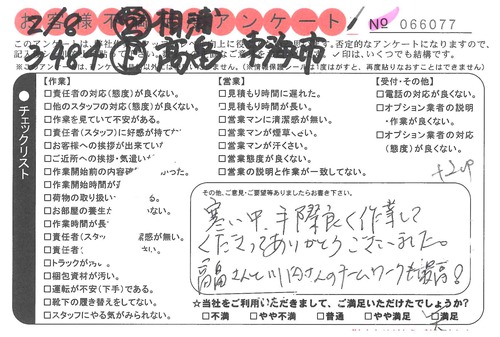 お客様不 アンケート
No 066077
2/8 営 相浦
3484 高畠 東海市
チェックリスト
【作業】
□責任者の対応(態度)が良くない。
□他のスタッフの対応(態度)が良くない。
□作業を見ていて不安がある。
□責任者(スタッフ)に好感が持て
□お客様への挨拶が出来てい
□ご近所への挨拶・気遣い
□作業開始前の内容確 かった。
□作業開始時間が
□荷物の取り扱い る。
□お部屋の養生が ない。
□作業時間が長
□責任者(スタッ 感が無い。
□責任者(スタッ さい。
□トラックが汚
□梱包資材が汚い。
□運転が不安(下手)である。
□靴下の履き替えをしてない。
□スタッフにやる気がみられない。
【営業】
□見積もり時間に遅れた。
□見積もり時間が長い。
□営業マンに清潔感が無い。
□営業マンが煙草くさい。
□営業マンが汗くさい。
□営業態度が良くない。
□営業の説明と作業が一致してない。
【受付・その他】
□電話の対応が良くない。
□オプション業者の説明
・作業が良くない。
□オプション業者の対応
(態度)が良くない。
その他、ご意見・ご要望等ありましたらお書き下さい。
寒い中、手際良く作業して
くださってありがとうございました。
高畠さんと川内さんのチームワークも最高!
☆当社をご利用いただきまして、ご満足いただけたでしょうか?
□不満 □やや不満 □普通 □やや満足 □満足